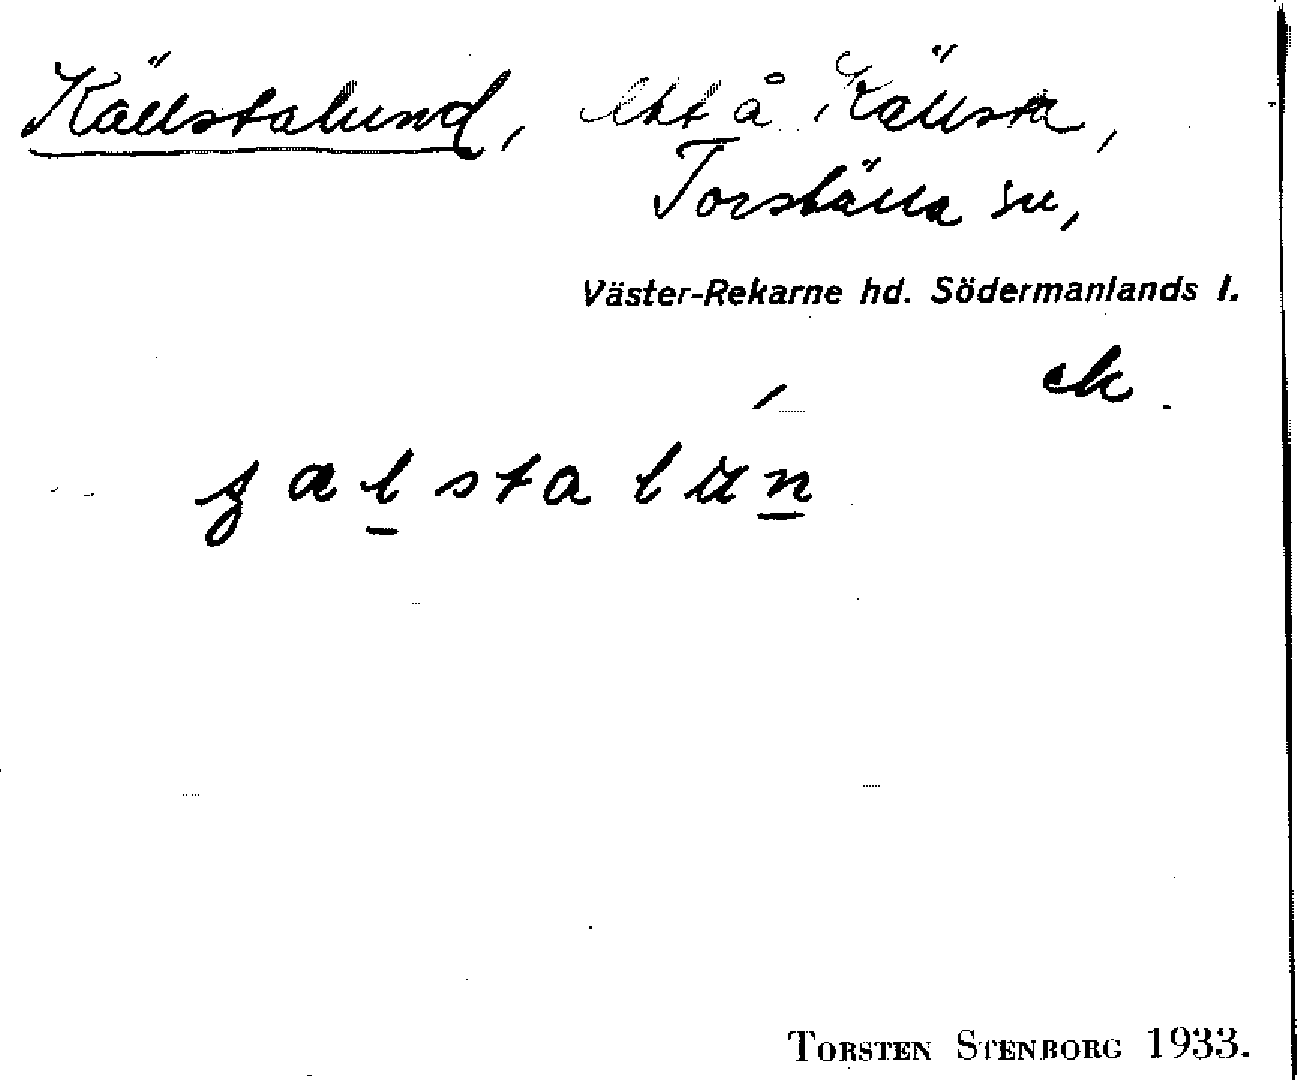 Källstalund, lht å Källsta,
Torshälla sn,
Väster-Rekarne hd. Södermanlands l.
ek.
TORSTEN STENBORG 1933.